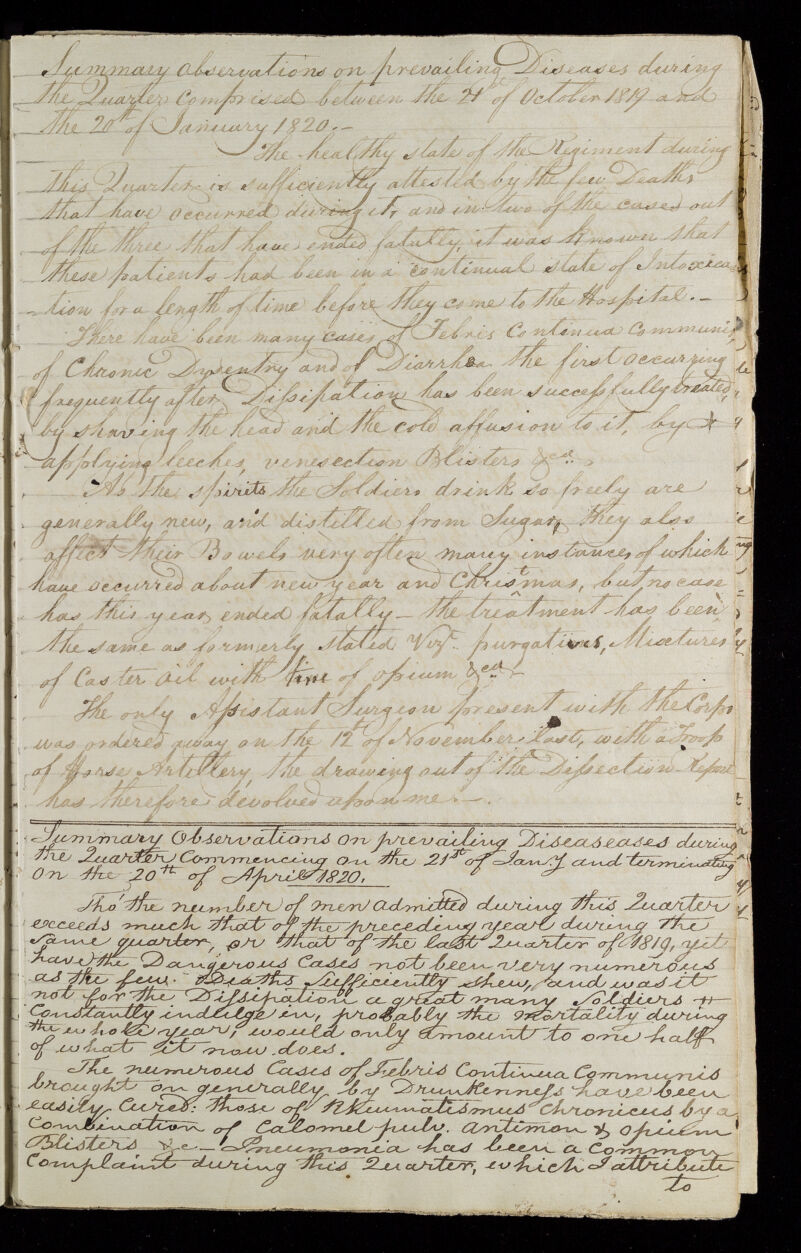 Summary Observations on prevailing Diseases during
the Quarter comprised between the 21st of October 1819 and
the 20th of January 1820.-
The healthy state of the Regiment during
this Quarter is sufficiently attested by the few Deaths
that have occurred during it, and in two of the cases out
of the three that have ended fatally, it was known that
these patients had been in a continual state of Intoxica-
-tion for a length of time before they come to the Hospital.-
There have been many cases of Febris Continua Communis,
of Chronic Dysentry and of Diarrhea the first occurring
frequently after Dissipation has been successfully treated,
by shaving the head and the cold affusion to it, by
applying leeches, venesection Blisters &ca.
As the spirits the Soldiers drink so freely are
generally new, and distelled from Sugar, they also
affect their Bowels very often many instances of which
have occurred about new year and Christmas, but no case
has this year ended fatally - the treatment has been
the same as formerly stated Vizt. purgatives, Mixtures
of Castor oil with tinc of opium &ca
The only Assistant Surgeon present with the Corps
was ordered away on the 12th of November last, with a Troop
of Horse Artillery, the drawing out of the Dissection Report
has therefore devolved upon me.-
Summary Observations on prevailing Diseaseases during
the Quarter Commencing on the 21st of Jany and terminating
on the 20th of April 1820.
Tho' the number of men admitted during this Quarter
exceeds much that of the preceding year during the
same quarter, or that of the last Quarter of 1819, yet
have the Dangerous Cases not been very numerous
as the few Deaths Sufficiently shew, and was it
not for the Dissipation a great many Soldiers
Constantly indlege in, probably the mortality during
the whole year, would only amount to one half
of what it now does.
The numerous Cases of Febris Continua Communis
brought on generally by Drunkenness have been
easily Cured: those of Rheumatismus Chronicus by a
Combination of Calomel pulv. antimon & opium
Blisters &c - Pneumonia has been a Common
Complaint during this Quarter, which I attribute
to